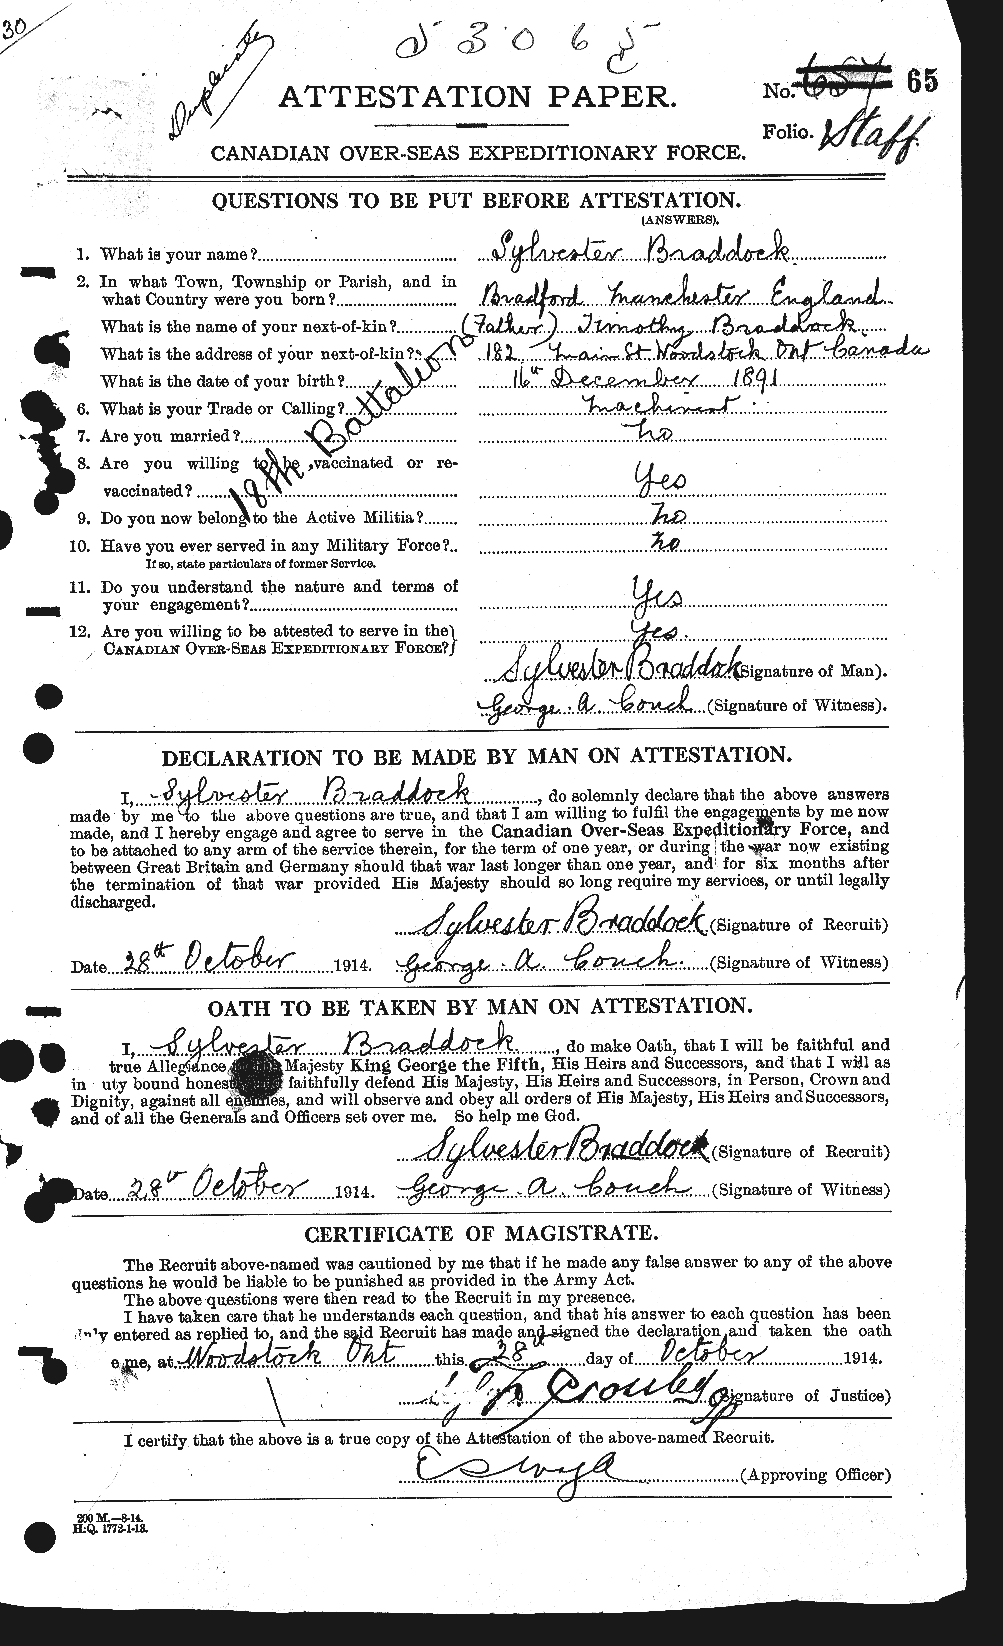 30
Duplicate
53065
ATTESTATION PAPER.
No. 657 65
Folio. Staff
CANADIAN OVER-SEAS EXPEDITIONARY FORCE.
QUESTIONS TO BE PUT BEFORE ATTESTATION.
(ANSWERS).
1. What is your name? Sylvester Braddock
2. In what Town, Township or Parish, and in
what Country were you born? Bradford Manchester England
What is the name of your next-of-kin? (Father) Timothy Braddock
What is the address of your next-of-kin? 182 Main St Woodstock Ont Canada
What is the date of your birth? 16th December 1891
6. What is your Trade or Calling? Machinist
7. Are you married? no
8. Are you willing to be vaccinated or re-
vaccinated? Yes
18th Battalion
9. Do you now belong to the Active Militia? no
10. Have you ever served in any Military Force? no
If so, state particulars of former Service.
11. Do you understand the nature and terms of
your engagement? Yes
12. Are you willing to be attested to serve in the
CANADIAN OVER-SEAS EXPEDITIONARY FORCE? Yes.
Sylvester Braddock (Signature of Man).
George A. Couch (Signature of Witness).
DECLARATION TO BE MADE BY MAN ON ATTESTATION.
I, Sylvester Braddock, do solemnly declare that the above answers
made by me to the above questions are true, and that I am willing to fulfil the engagements by me now
made, and I hereby engage and agree to serve in the Canadian Over-Seas Expeditionary Force, and
to be attached to any arm of the service therein, for the term of one year, or during the war now existing
between Great Britain and Germany should that war last longer than one year, and for six months after
the termination of that war provided His Majesty should so long require my services, or until legally
discharged.
Sylvester Braddock (Signature of Recruit)
Date 28th October 1914. George A. Couch. (Signature of Witness)
OATH TO BE TAKEN BY MAN ON ATTESTATION.
I, Sylvester Braddock, do make Oath, that I will be faithful and
true Allegiance Majesty King George the Fifth, His Heirs and Successors, and that I will as
in uty bound honest faithfully defend His Majesty, His Heirs and Successors, in Person, Crown and
Dignity, against all enemies, and will observe and obey all orders of His Majesty, His Heirs and Successors,
and of all the Generals and Officers set over me. So help me God.
Sylvester Braddock (Signature of Recruit)
Date 28th October 1914. George A. Couch (Signature of Witness)
CERTIFICATE OF MAGISTRATE.
The Recruit above-named was cautioned by me that if he made any false answer to any of the above
questions he would be liable to be punished as provided in the Army Act.
The above questions were then read to the Recruit in my presence.
I have taken care that he understands each question, and that his answer to each question has been
entered as replied to, and the said Recruit has made and signed the declaration and taken the oath
e me, at Woodstock Ont this 28th day of October 1914.
Crosby JP (Signature of Justice)
I certify that the above is a true copy of the Attestation of the above-named Recruit.
(Approving Officer)
200 M.—8-14.
H.Q. 1772-1-13.